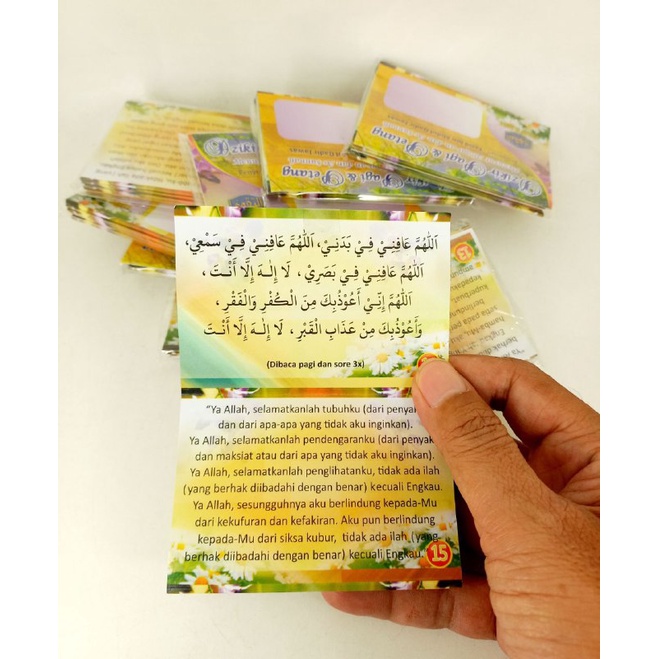 اَللّٰهُمَّ عَافِنِيْ فِيْ بَدَنِيْ، اَللّٰهُمَّ عَافِنِيْ فِيْ سَمْعِيْ،
اَللّٰهُمَّ عَافِنِيْ فِيْ بَصَرِيْ، لَا إِلٰـهَ إِلَّا أَنْـتَ،
اَللّٰهُمَّ إِنِّيْ أَعُوْذُبِكَ مِنَ الْكُفْرِ وَالْفَقْرِ،
وَأَعُوْذُبِكَ مِنْ عَذَابِ الْقَبْرِ، لَا إِلٰـهَ إِلَّا أَنْـتَ
(Dibaca pagi dan sore 3x)
"Ya Allah, selamatkanlah tubuhku (dari penyak
dan dari apa-apa yang tidak aku inginkan).
Ya Allah, selamatkanlah pendengaranku (dari penyak
dan maksiat atau dari apa yang tidak aku inginkan).
Ya Allah, selamatkanlah penglihatanku, tidak ada ilah
(yang berhak diibadahi dengan benar) kecuali Engkau.
Ya Allah, sesungguhnya aku berlindung kepada-Mu
dari kekufuran dan kefakiran. Aku pun berlindung
kepada-Mu dari siksa kubur, tidak ada ilah (yang
berhak diibadahi dengan benar) kecuali Engkau.
15
Dzikir Pagi & Petang
13